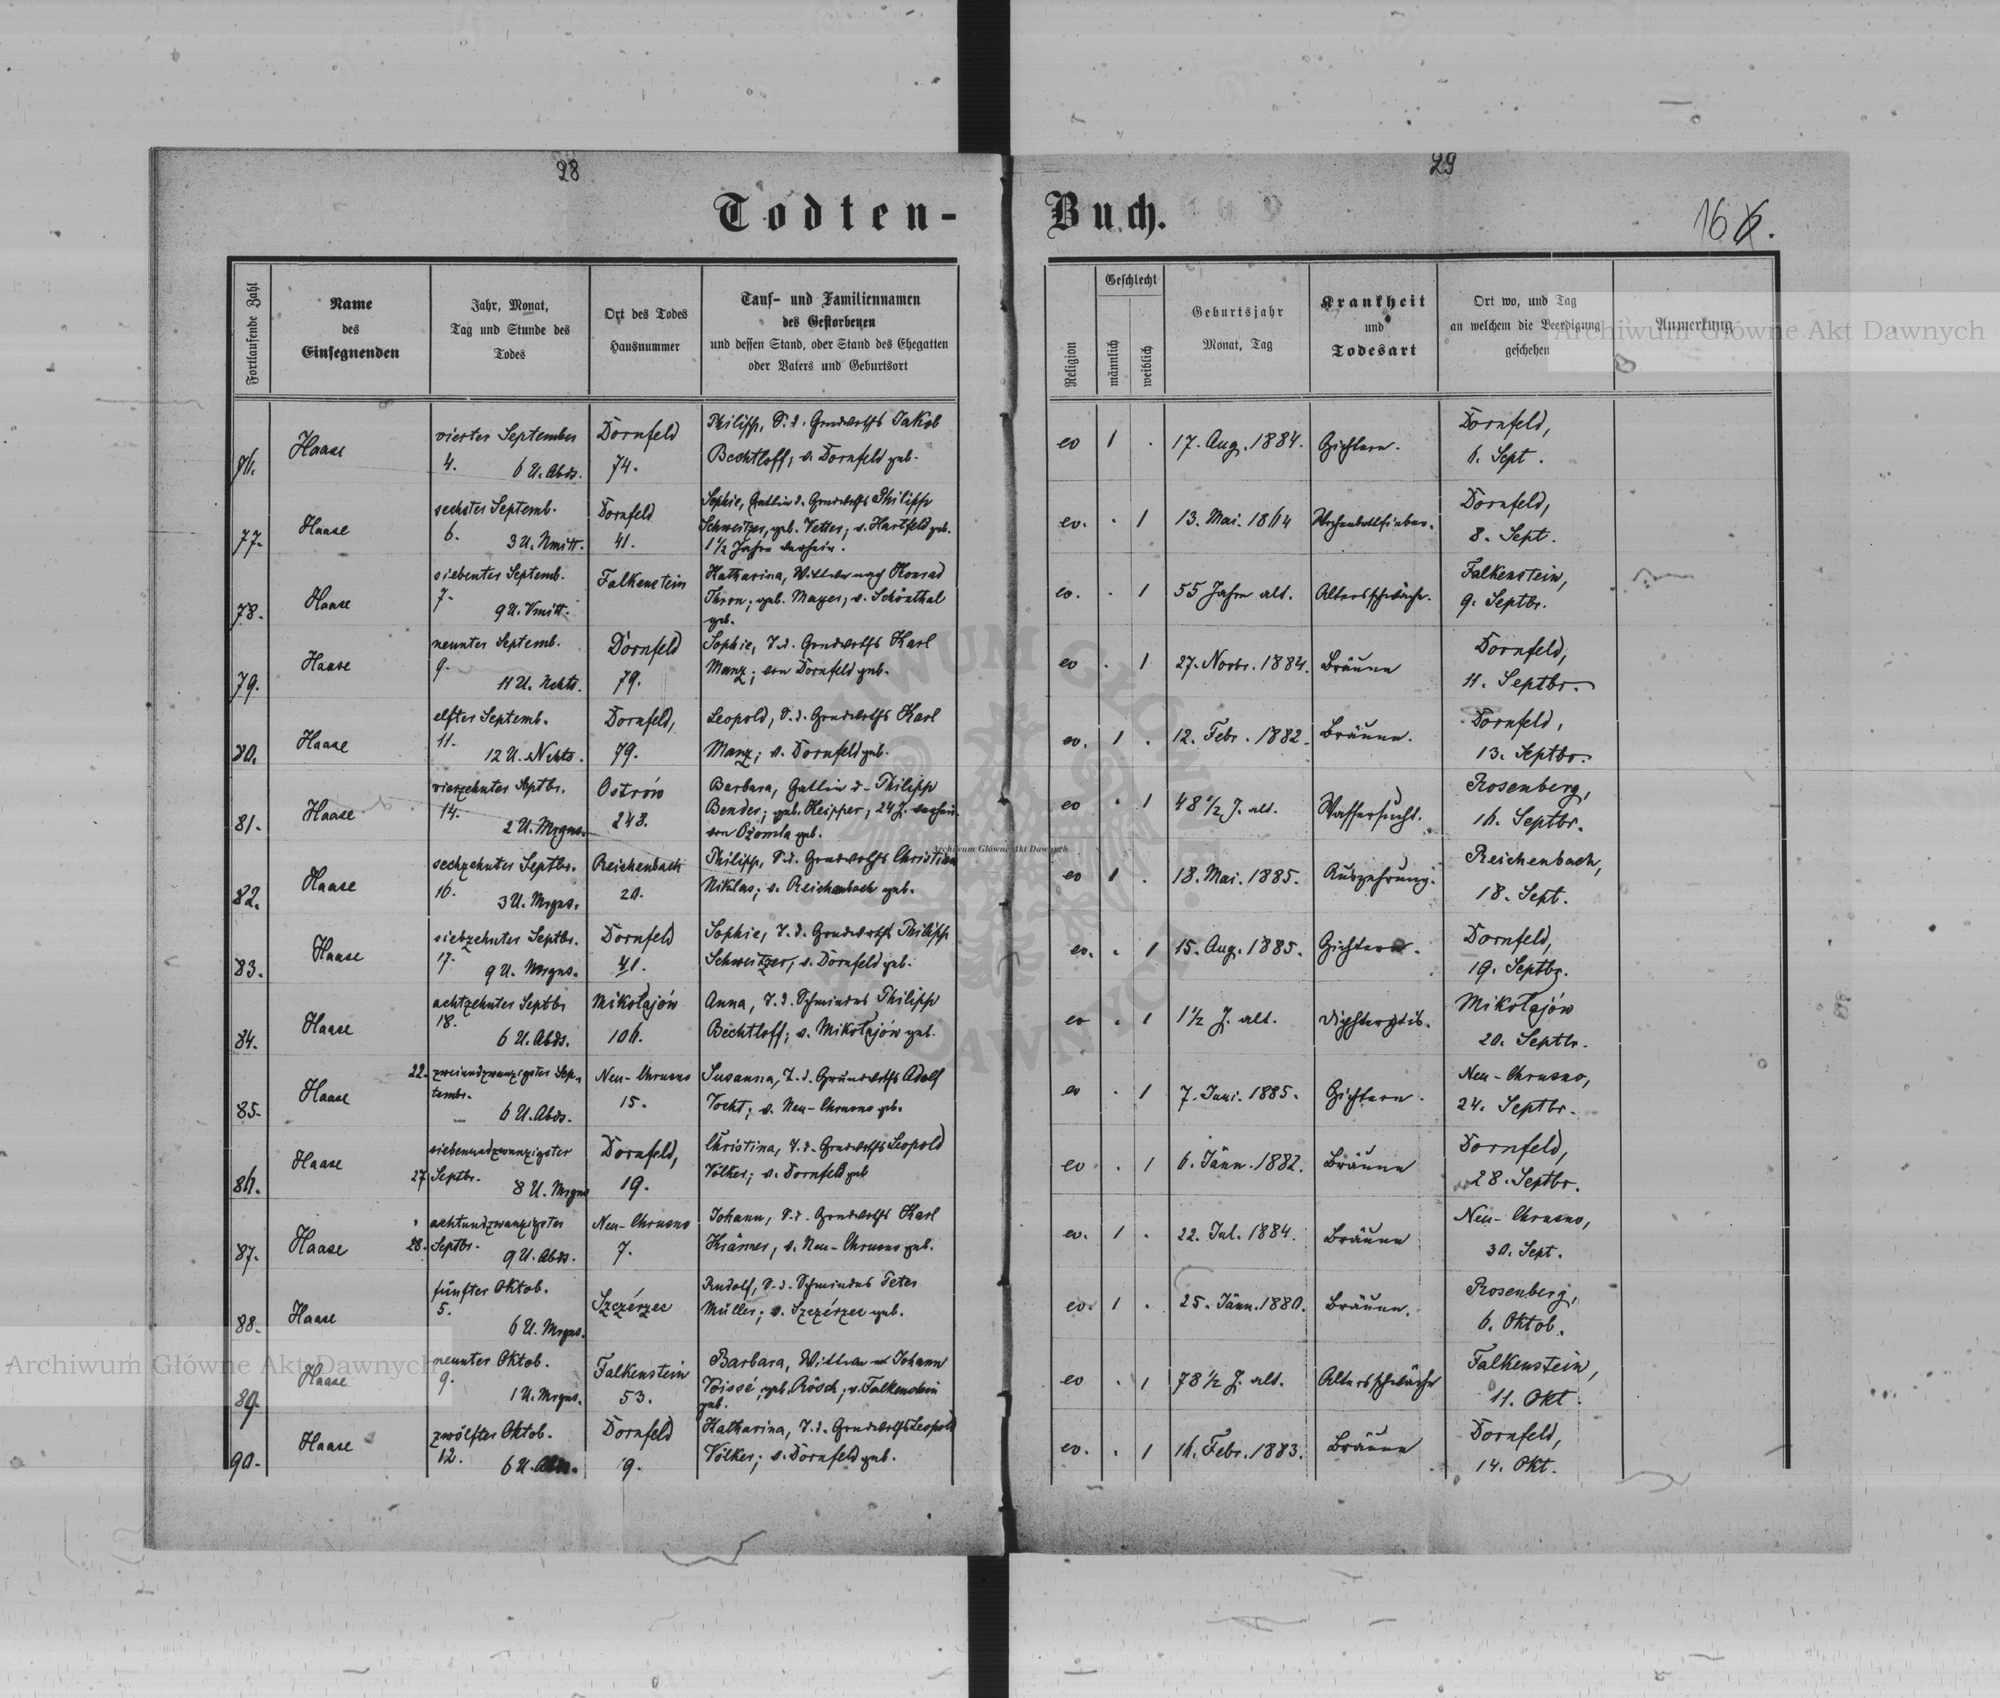 28
29
Todten-Buch.
16
Fortlaufende Zahl
Name
des
Einsegnenden
Jahr, Monat,
Tag und Stunde des
Todes
Ort des Todes
Hausnummer
Tauf- und Familiennamen
des Gestorbenen
und dessen Stand, oder Stand des Ehegatten
oder Vaters und Geburtsort
Religion
Geschlecht
männlich
weiblich
Geburtsjahr
Monat, Tag
Krankheit
und
Todesart
Ort wo, und Tag
an welchem die Beerdigung
geschehen
Anmerkung
Archiwum Główne Akt Dawnych
76. Haase
vierter September
4. 6 U. Abds.
Dornfeld
74.
Philipp, S. d. Grndwrths Jakob
Bechtloff; v. Dornfeld geb.
ev 1 . 17. Aug. 1884. Gichtern.
Dornfeld,
6. Sept.
77. Haase
sechster Septemb.
6. 3 U. Nmitt.
Dornfeld
41.
Sophie, Gattin d. Grndwrths Philipp
Schweitzer, geb. Vetter; v. Hartfeld geb.
1 1/2 Jahre verhein.
ev. . 1 13. Mai. 1864 Wochenbettfieber.
Dornfeld,
8. Sept.
78. Haase
siebenter Septemb.
7. 9 U. Vmitt.
Falkenstein
Katharina, Wittwe nach Konrad
Thron; geb. Mayer, v. Schönthal
geb.
ev. . 1 55 Jahre alt. Altersschwäche.
Falkenstein,
9. Septbr.
79. Haase
neunter Septemb.
9. 11 U. Nchts.
Dornfeld
79.
Sophie, T. d. Grndwrths Karl
Manz; von Dornfeld geb.
ev . 1 27. Novbr. 1884. Bräune
Dornfeld,
11. Septbr.
80. Haase
elfter Septemb.
11. 12 U. Nchts.
Dornfeld,
79.
Leopold, S. d. Grndwrths Karl
Manz; v. Dornfeld geb.
ev. 1 . 12. Febr. 1882. Bräune.
Dornfeld,
13. Septbr.
81. Haase
vierzehnter Septbr.
14. 2 U. Mrgns.
Ostrów
248.
Barbara, Gattin d. Philipp
Bender; geb. Keipper, 24 J. verhein.
von Dzomla geb.
ev . 1 48 1/2 J. alt. Wassersucht.
Rosenberg,
16. Septbr.
82. Haase
sechzehnter Septbr.
16. 3 U. Mrgns.
Reichenbach
20.
Philipp, S. d. Grndwrths Christian
Niklas; v. Reichenbach geb.
ev 1 . 18. Mai. 1885. Auszehrung.
Reichenbach,
18. Sept.
83. Haase
siebzehnter Septbr.
17. 9 U. Mrgns.
Dornfeld
41.
Sophie, T. d. Grndwrths Philipp
Schweitzer, v. Dornfeld geb.
ev. . 1 15. Aug. 1885. Gichtern.
Dornfeld,
19. Septbr.
84. Haase
achtzehnter Septbr
18. 6 U. Abds.
Mikołajów
106.
Anna, T. d. Schmiedes Philipp
Bechtloff; v. Mikołajów geb.
ev . 1 1 1/2 J. alt.
Mikołajów
20. Septbr.
85. Haase
22. zweiundzwanzigster Sep-
tembr.
6 U. Abds.
Neu-Chrusno
15.
Susanna, T. d. Grundwrths Adolf
Vocht; v. Neu-Chrusno geb.
ev . 1 7. Juni. 1885. Gichtern.
Neu-Chrusno,
24. Septbr.
86. Haase
siebenundzwanzigster
27. Septbr. 8 U. Mrgns
Dornfeld,
19.
Christina, T. d. Grndwrths Leopold
Völker; v. Dornfeld geb
ev . 1 6. Jänn. 1882. Bräune
Dornfeld,
28. Septbr.
87. Haase
achtundzwanzigster
28. Septbr. 9 U. Abds.
Neu-Chrusno
7.
Johann, S. d. Grndwrths Karl
Krämer, v. Neu-Chrusno geb.
ev. 1 . 22. Jul. 1884. Bräune
Neu-Chrusno,
30. Sept.
88. Haase
fünfter Oktob.
5. 6 U. Mrgns.
Szczérzec
Rudolf, S. d. Schmiedes Peter
Müller; v. Szczérzec geb.
ev. 1 . 25. Jänn. 1880. Bräune.
Rosenberg,
6. Oktob.
89. Haase
neunter Oktob.
9. 1 U. Mrgns.
Falkenstein
53.
Barbara, Wittwe n. Johann
Voissé, geb. Rösch; v. Falkenstein
geb.
ev . 1 78 1/2 J. alt. Altersschwäche
Falkenstein,
11. Okt.
90. Haase
zwölfter Oktob.
12. 6 U. Abds.
Dornfeld
9.
Katharina, T. d. Grndwrths Leopold
Völker; v. Dornfeld geb.
ev. . 1 16. Febr. 1883. Bräune
Dornfeld,
14. Okt.
Archiwum Główne Akt Dawnych
Archiwum Główne Akt Dawnych